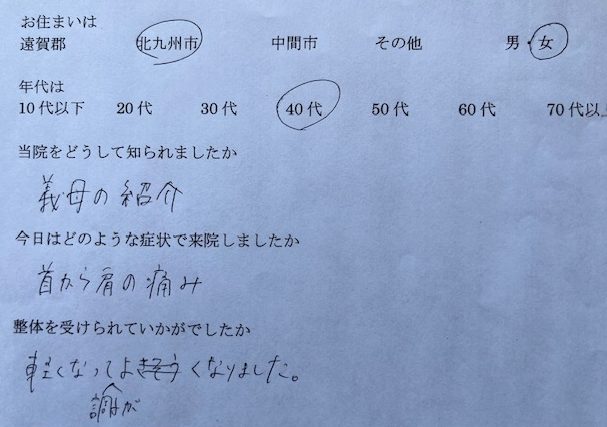 お住まいは
遠賀郡 北九州市 中間市 その他 男・女
年代は
10代以下 20代 30代 40代 50代 60代 70代以上
当院をどうして知られましたか
義母の紹介
今日はどのような症状で来院しましたか
首から肩の痛み
整体を受けられていかがでしたか
軽くなってよくなりました。
調子が